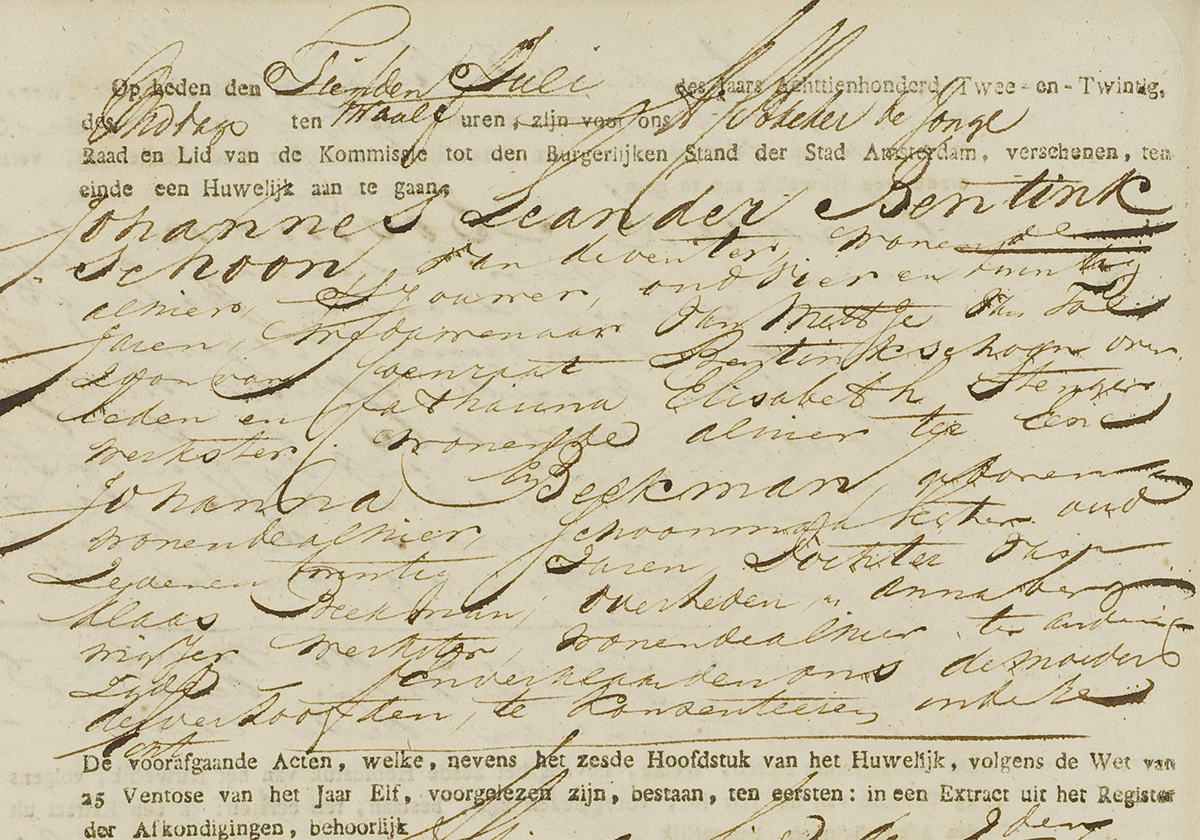 Op heden den Tienden Juli des Jaars Achttienhonderd Twee-en-Twintig,
des dings ten twaalf uren, zijn voor ons de Jonge
Raad en Lid van de Kommissie tot den Burgerlijken Stand der Stad Amsterdam, verschenen, ten
einde een Huwelijk aan te gaan,
Johannes Leander Bentink
Schoon, van deventer, wonende
alhier, Sjouwer, oud vier en twintig
Jaren,
Zoon van Coenraat Bentinkschoon over
leden en Catharina Elisabeth Stenger
werkster, wonende alhier ter Eene
Johanna Beekman, geboren en
wonende alhier, schoonmaakster oud
Zeven en twintig Jaren, Dochter van
Klaas Beekman, overleden, en anna berg
meijer werkster, wonende alhier ter andere
Zyde En verklaarden ons de moeders
der verloofden, te konsenteeren in deze
De voorafgaande Acten, welke, nevens het zesde Hoofdstuk van het Huwelijk, volgens de Wet van
25 Ventose van het Jaar Elf, voorgelezen zijn, bestaan, ten eersten: in een Extract uit het Register
der Afkondigingen, behoorlijk